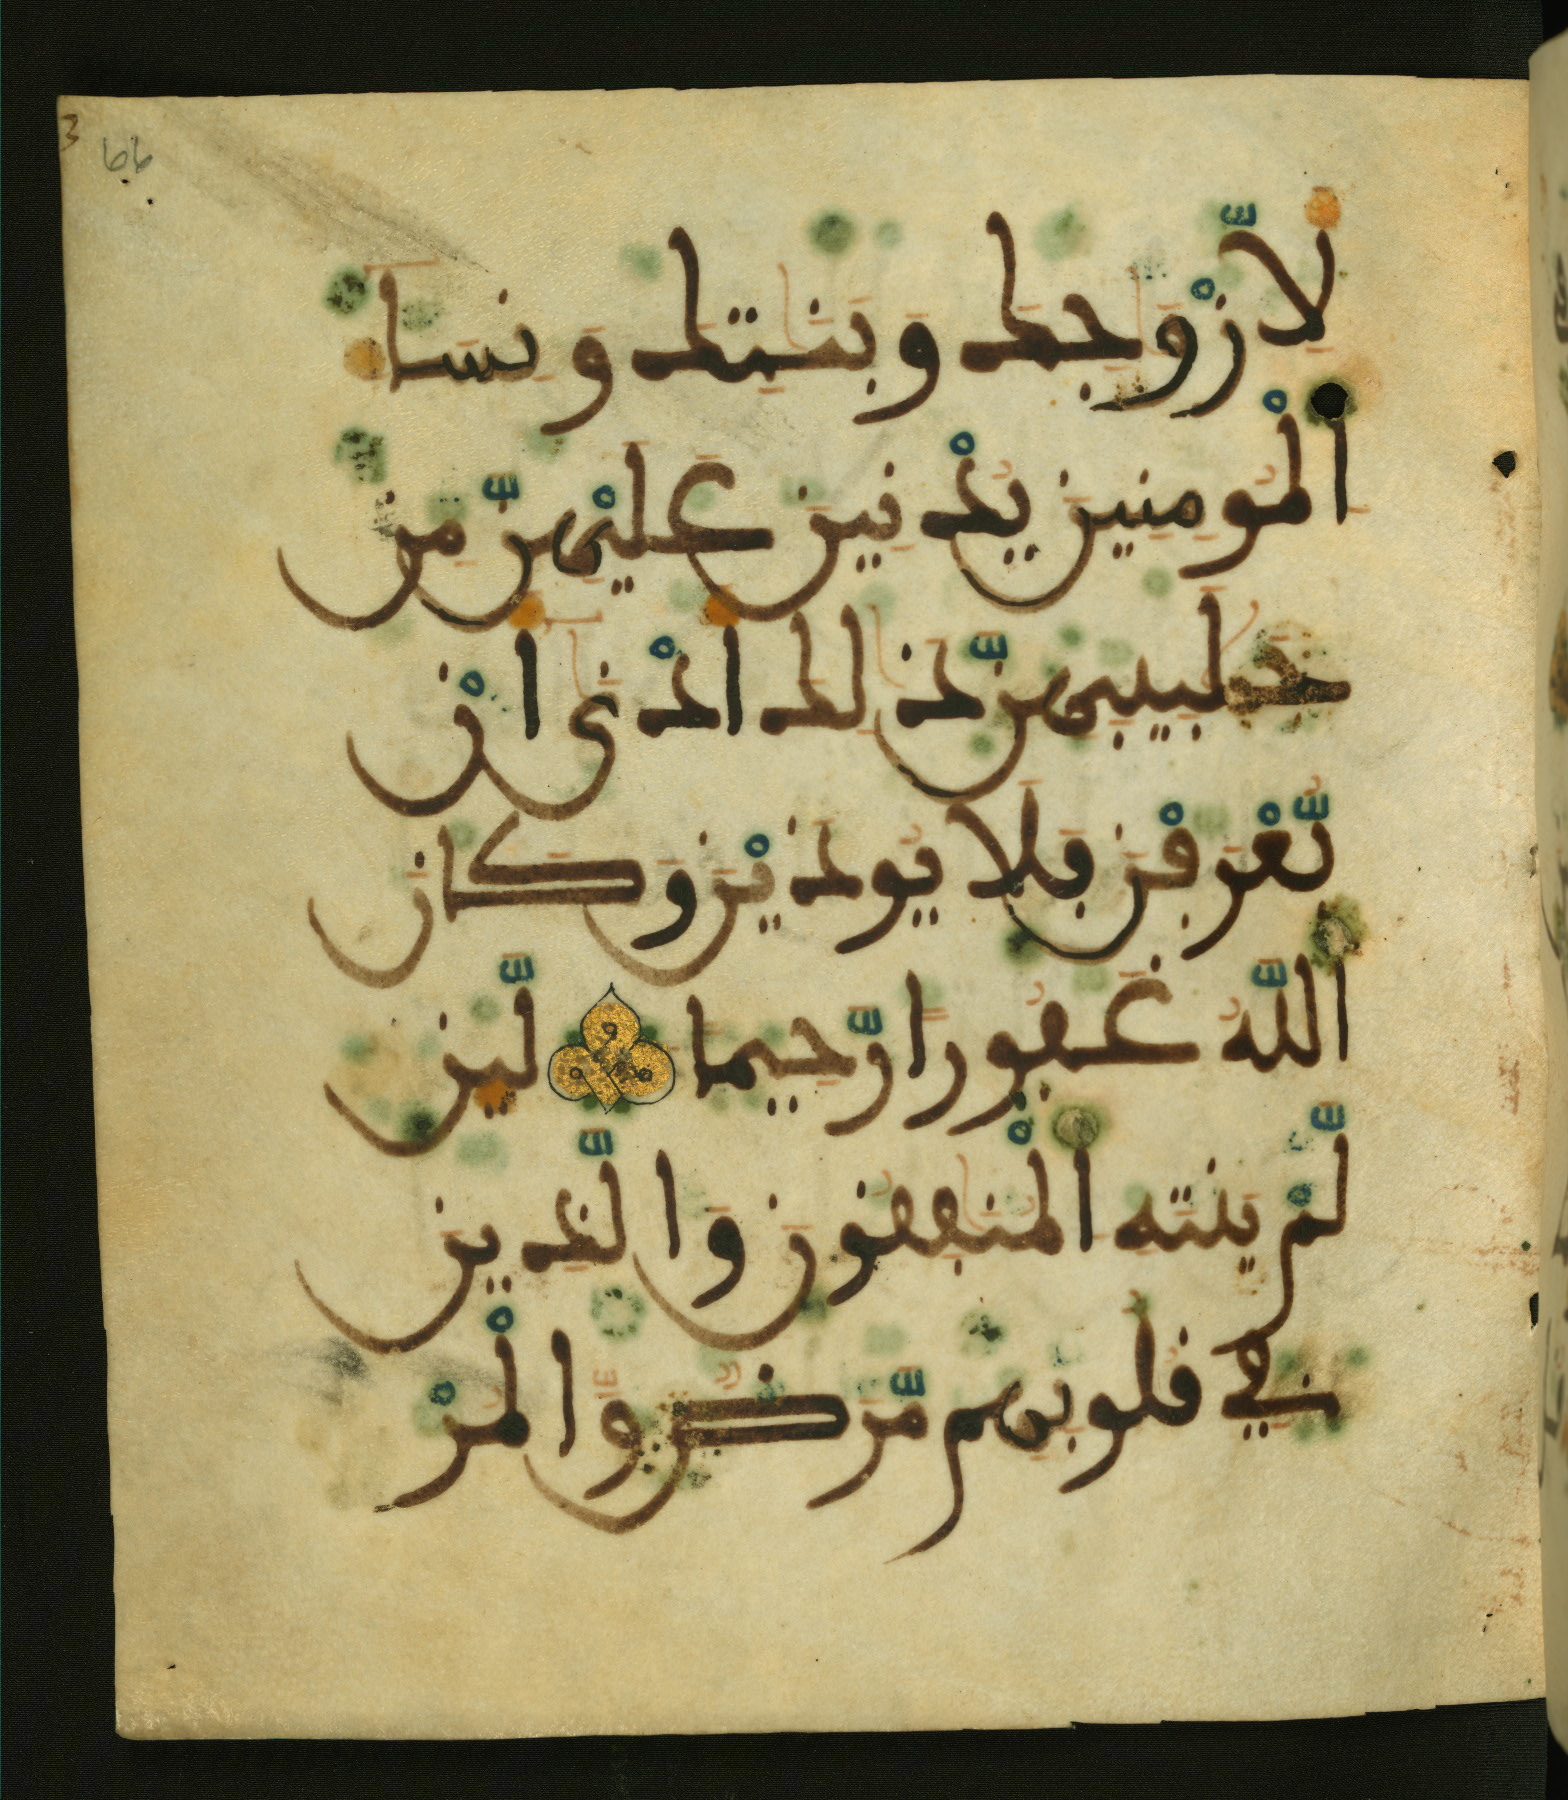 3
66
لِّأَزْوَٰجِكَ وَبَنَٰتِكَ وَنِسَآءِ
اَ۬لْمُومِنِينَ يُدْنِينَ عَلَيْهِنَّ مِن
جَلَٰبِيبِهِنَّ ذَٰلِكَ أَدْنَىٰٓ أَنْ
يُّعْرَفْنَ فَلَا يُوذَيْنَ وَكَانَ
اَ۬للَّهُ غَفُوراٗ رَّحِيماٗ لَّئِن
لَّمْ يَنتَهِ اِ۬لْمُنَٰفِقُونَ وَالَّذِينَ
فِي قُلُوبِهِم مَّرَضٞ وَالْمُرْ